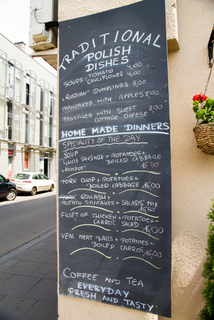 TRADITIONAL
POLISH
DISHES
SOUPS TOMATO 4,00
CAULIFLOWER 4,00
"RUSSIAN" DUMPLINGS 8,00
PANCAKES WITH APPLES 8,00
PANCAKES WITH SWEET 8,00
COTTAGE CHEESE
HOME MADE DINNERS
SPECIALITY OF THE DAY
SOUP
WHITE SAUSAGE + POTATOES +
BOILED CABBAGE
+ KOMPOT 15,00
PORK CHOP + POTATOES +
BOILED CABBAGE 16,00
GOULASH +
POTATO PANCAKES + SALADS MIX
FILLET OF CHICKEN + POTATOES
CARROT SALAD 15,00
VEAL MEAT BALLS + POTATOES +
BOILED CARROTS 16,00
COFFEE AND TEA
EVERYDAY
FRESH AND TASTY